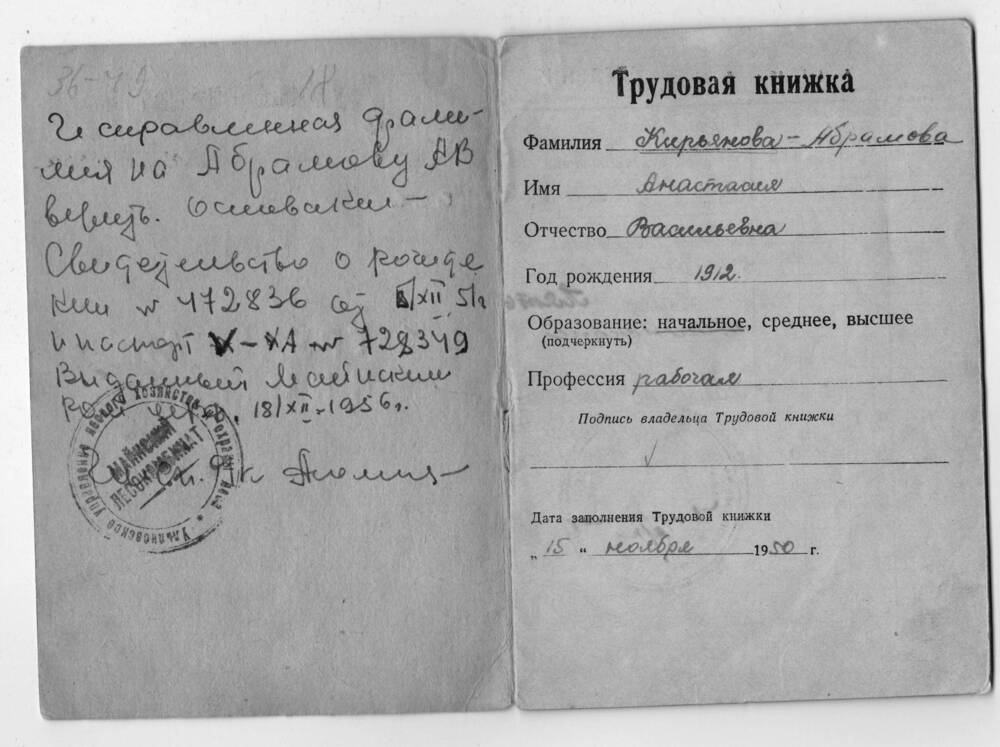 36-49 18
Исправленная фами-
лия на Абрамову АВ
верить. Основании -
Свидетельство о рожде
нии № 472836 от 5/XII 51г
и паспорт V-ХА № 728349
Выданный Майнским
18/XII-1956 г.
Ульяновское управление лесного хозяйства
МАЙНСКИЙ
ЛЕСОКОМБИНАТ
Трудовая книжка
Фамилия Кирьянова-Абрамова
Имя Анастасия
Отчество Васильевна
Год рождения 1912
Образование: начальное, среднее, высшее
(подчеркнуть)
Профессия рабочая
Подпись владельца Трудовой книжки
Дата заполнения Трудовой книжки
„15“ ноября 1950 г.